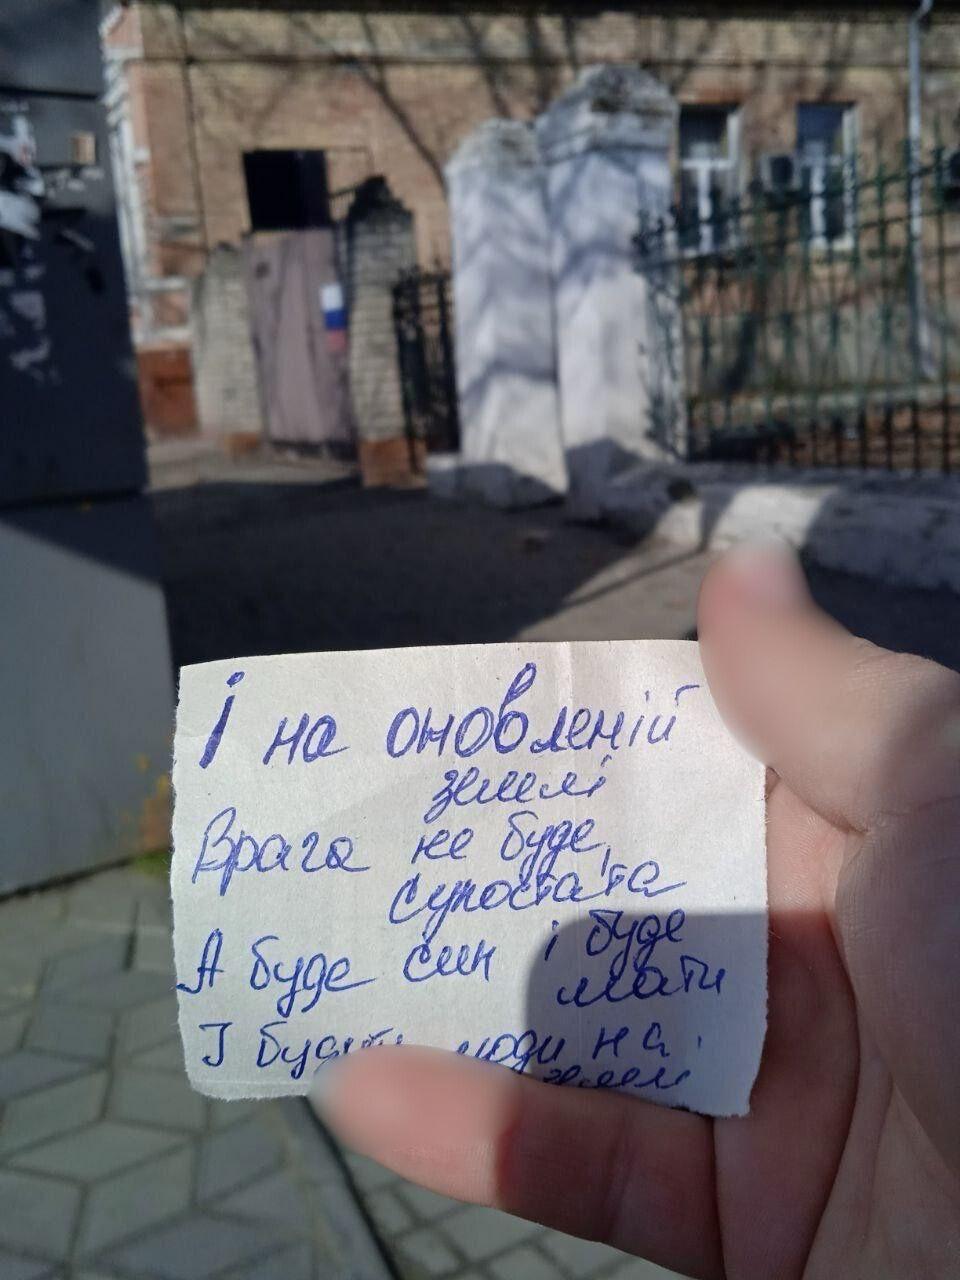 І на оновленій
землі
Врага не буде,
супостата
А буде син і буде
мати
І будуть люди на
землі